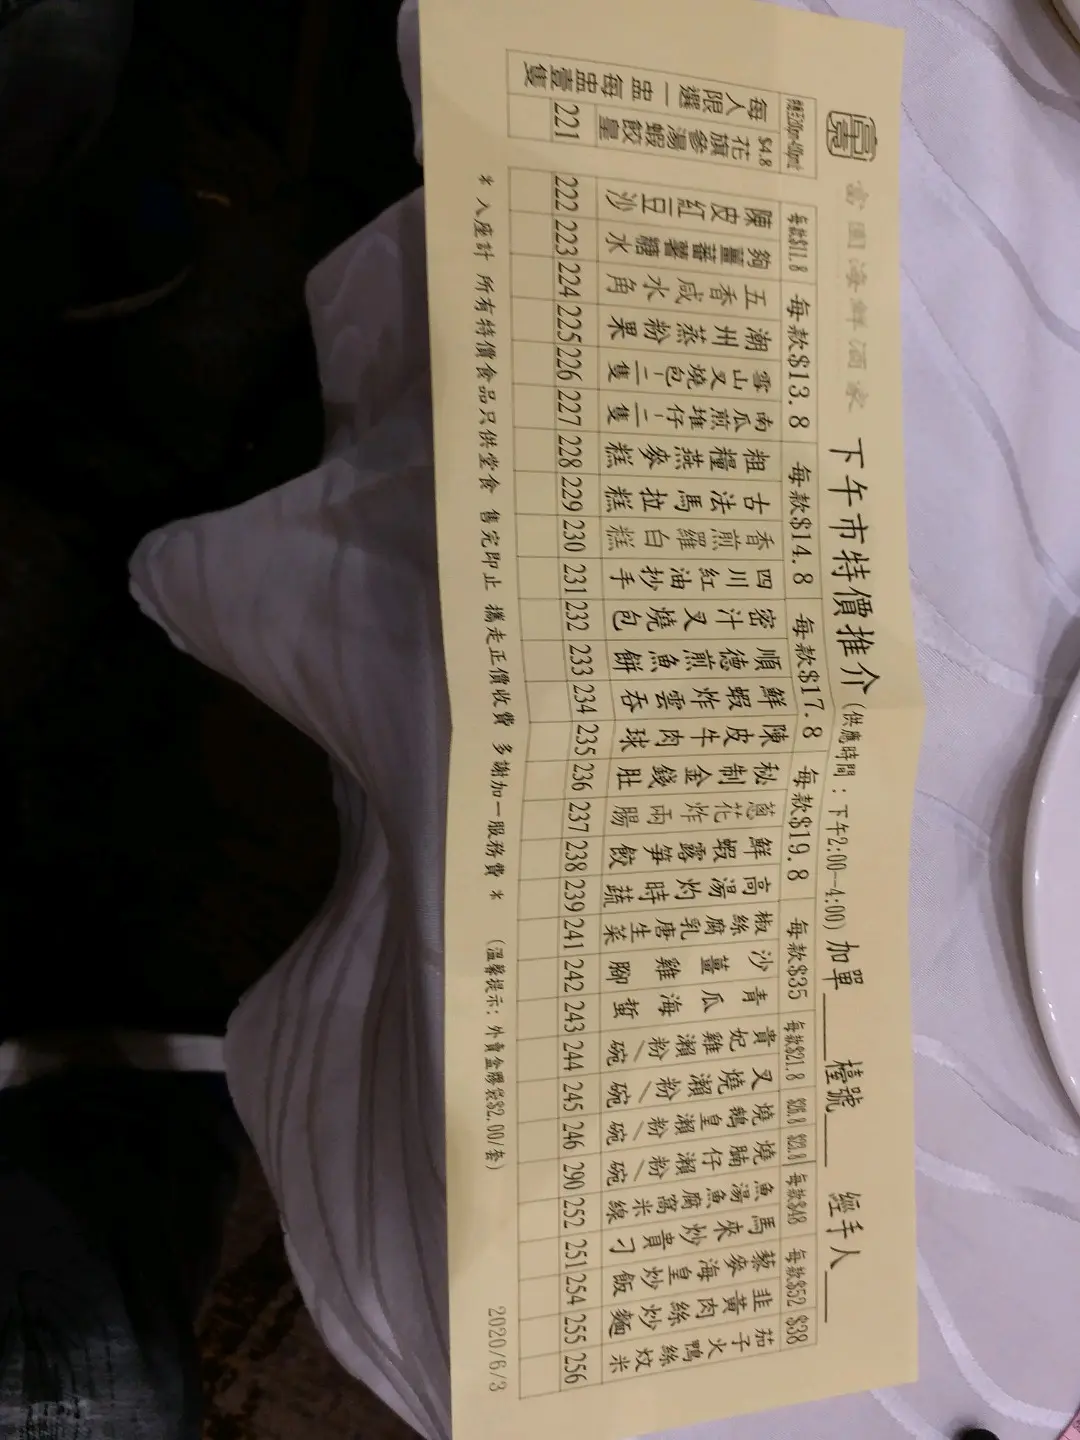 富國海鮮酒家
下午市特價推介(供應時間:下午2:00—4:00) 加單 檯號 經手人
$4.8
每人限選一盅 每盅壹隻
花旗參湯蝦餃皇 221
每款$11.8
陳皮紅豆沙 222
夠薑蕃薯糖水 223
每款$13.8
五香咸水角 224
潮州蒸粉果 225
雪山叉燒包(二隻 226
南瓜煎堆仔(二隻 227
每款$14.8
粗糧燕麥糕 228
古法馬拉糕 229
香煎羅白糕 230
每款$17.8
四川紅油抄手 231
密汁叉燒包 232
順德煎魚餅 233
鮮蝦炸雲吞 234
陳皮牛肉球 235
每款$19.8
秘制金錢肚 236
蔥花炸兩腸 237
鮮蝦露笋餃 238
高湯灼時蔬 239
椒絲腐乳唐生菜 241
每款$35
沙薑雞腳 242
青瓜海蜇 243
每款$21.8
貴妃雞瀨粉/碗 244
叉燒瀨粉/碗 245
燒鵝皇瀨粉/碗 246
$23.8
燒腩仔瀨粉/碗 290
每款$48
魚湯魚腐窩米線 252
馬來炒貴刁 251
每款$52
藜麥海皇炒飯 254
韭黃肉絲炒麵 255
$38
茄子火鴨絲炆米 256
* 入座計 所有特價食品只供堂食 售完即止 攜走正價收費 多謝加一服務費 *
(溫馨提示:外賣盒膠袋$2.00/套)
2020/6/3